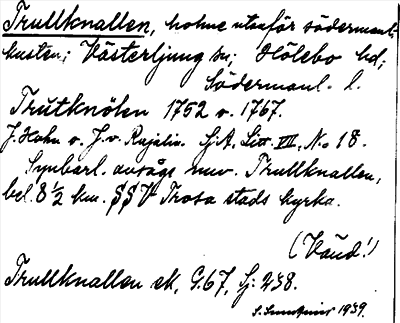 Trullknallen, holme utanför södermanl.-
kusten; Västerljung sn; Hölebo hd;
Södermanl. l.
Trutknölen 1752 o. 1767.
J. Hahn o. J. v. Rajalin. Sj.A. Litt. VII, No 18.
Synbarl. avsågs nuv. Trullknallen,
bel. 8 ½ km. SSV Trosa stads kyrka.
(Vänd!)
Trullknallen ek, G.67, Sj: 238.
1939.